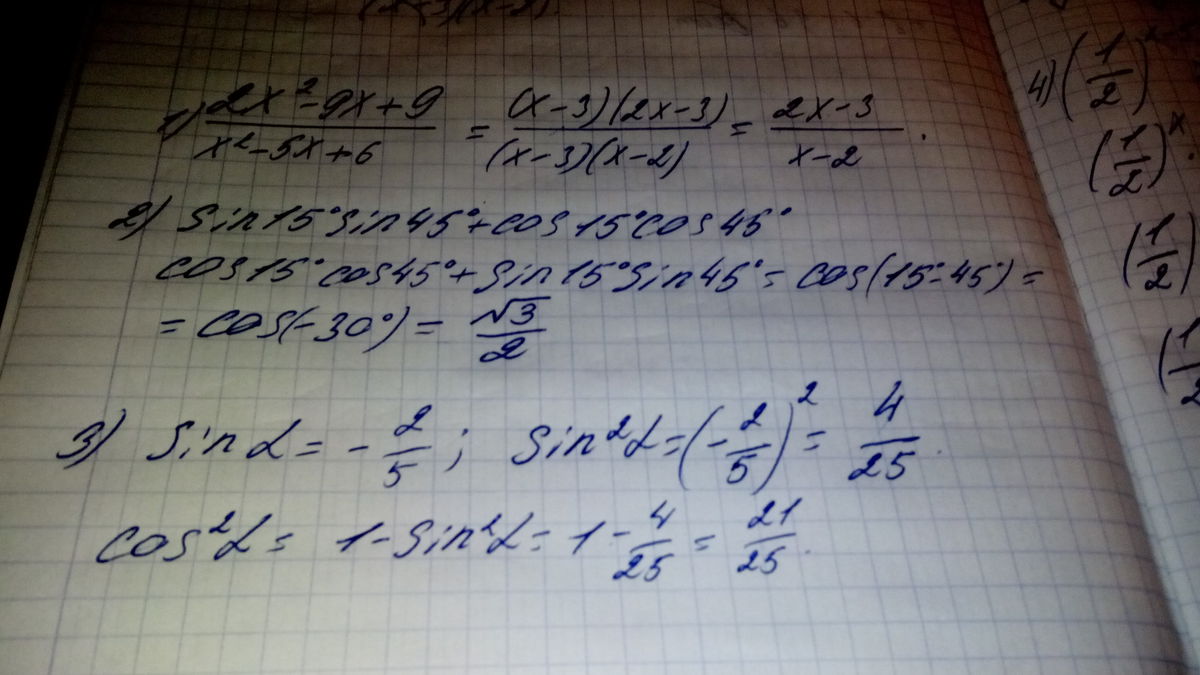 1) (2x²-9x+9)/(x²-5x+6) = ((x-3)(2x-3))/((x-3)(x-2)) = (2x-3)/(x-2).
2) sin15°sin45°+cos15°cos45°
cos15°cos45°+sin15°sin45° = cos(15°-45°) =
= cos(-30°) = √3/2
3) sin α = -2/5; sin²α = (-2/5)² = 4/25.
cos²α = 1-sin²α = 1-4/25 = 21/25.
4) (1/2)
(1/2)ˣ
(1/2)